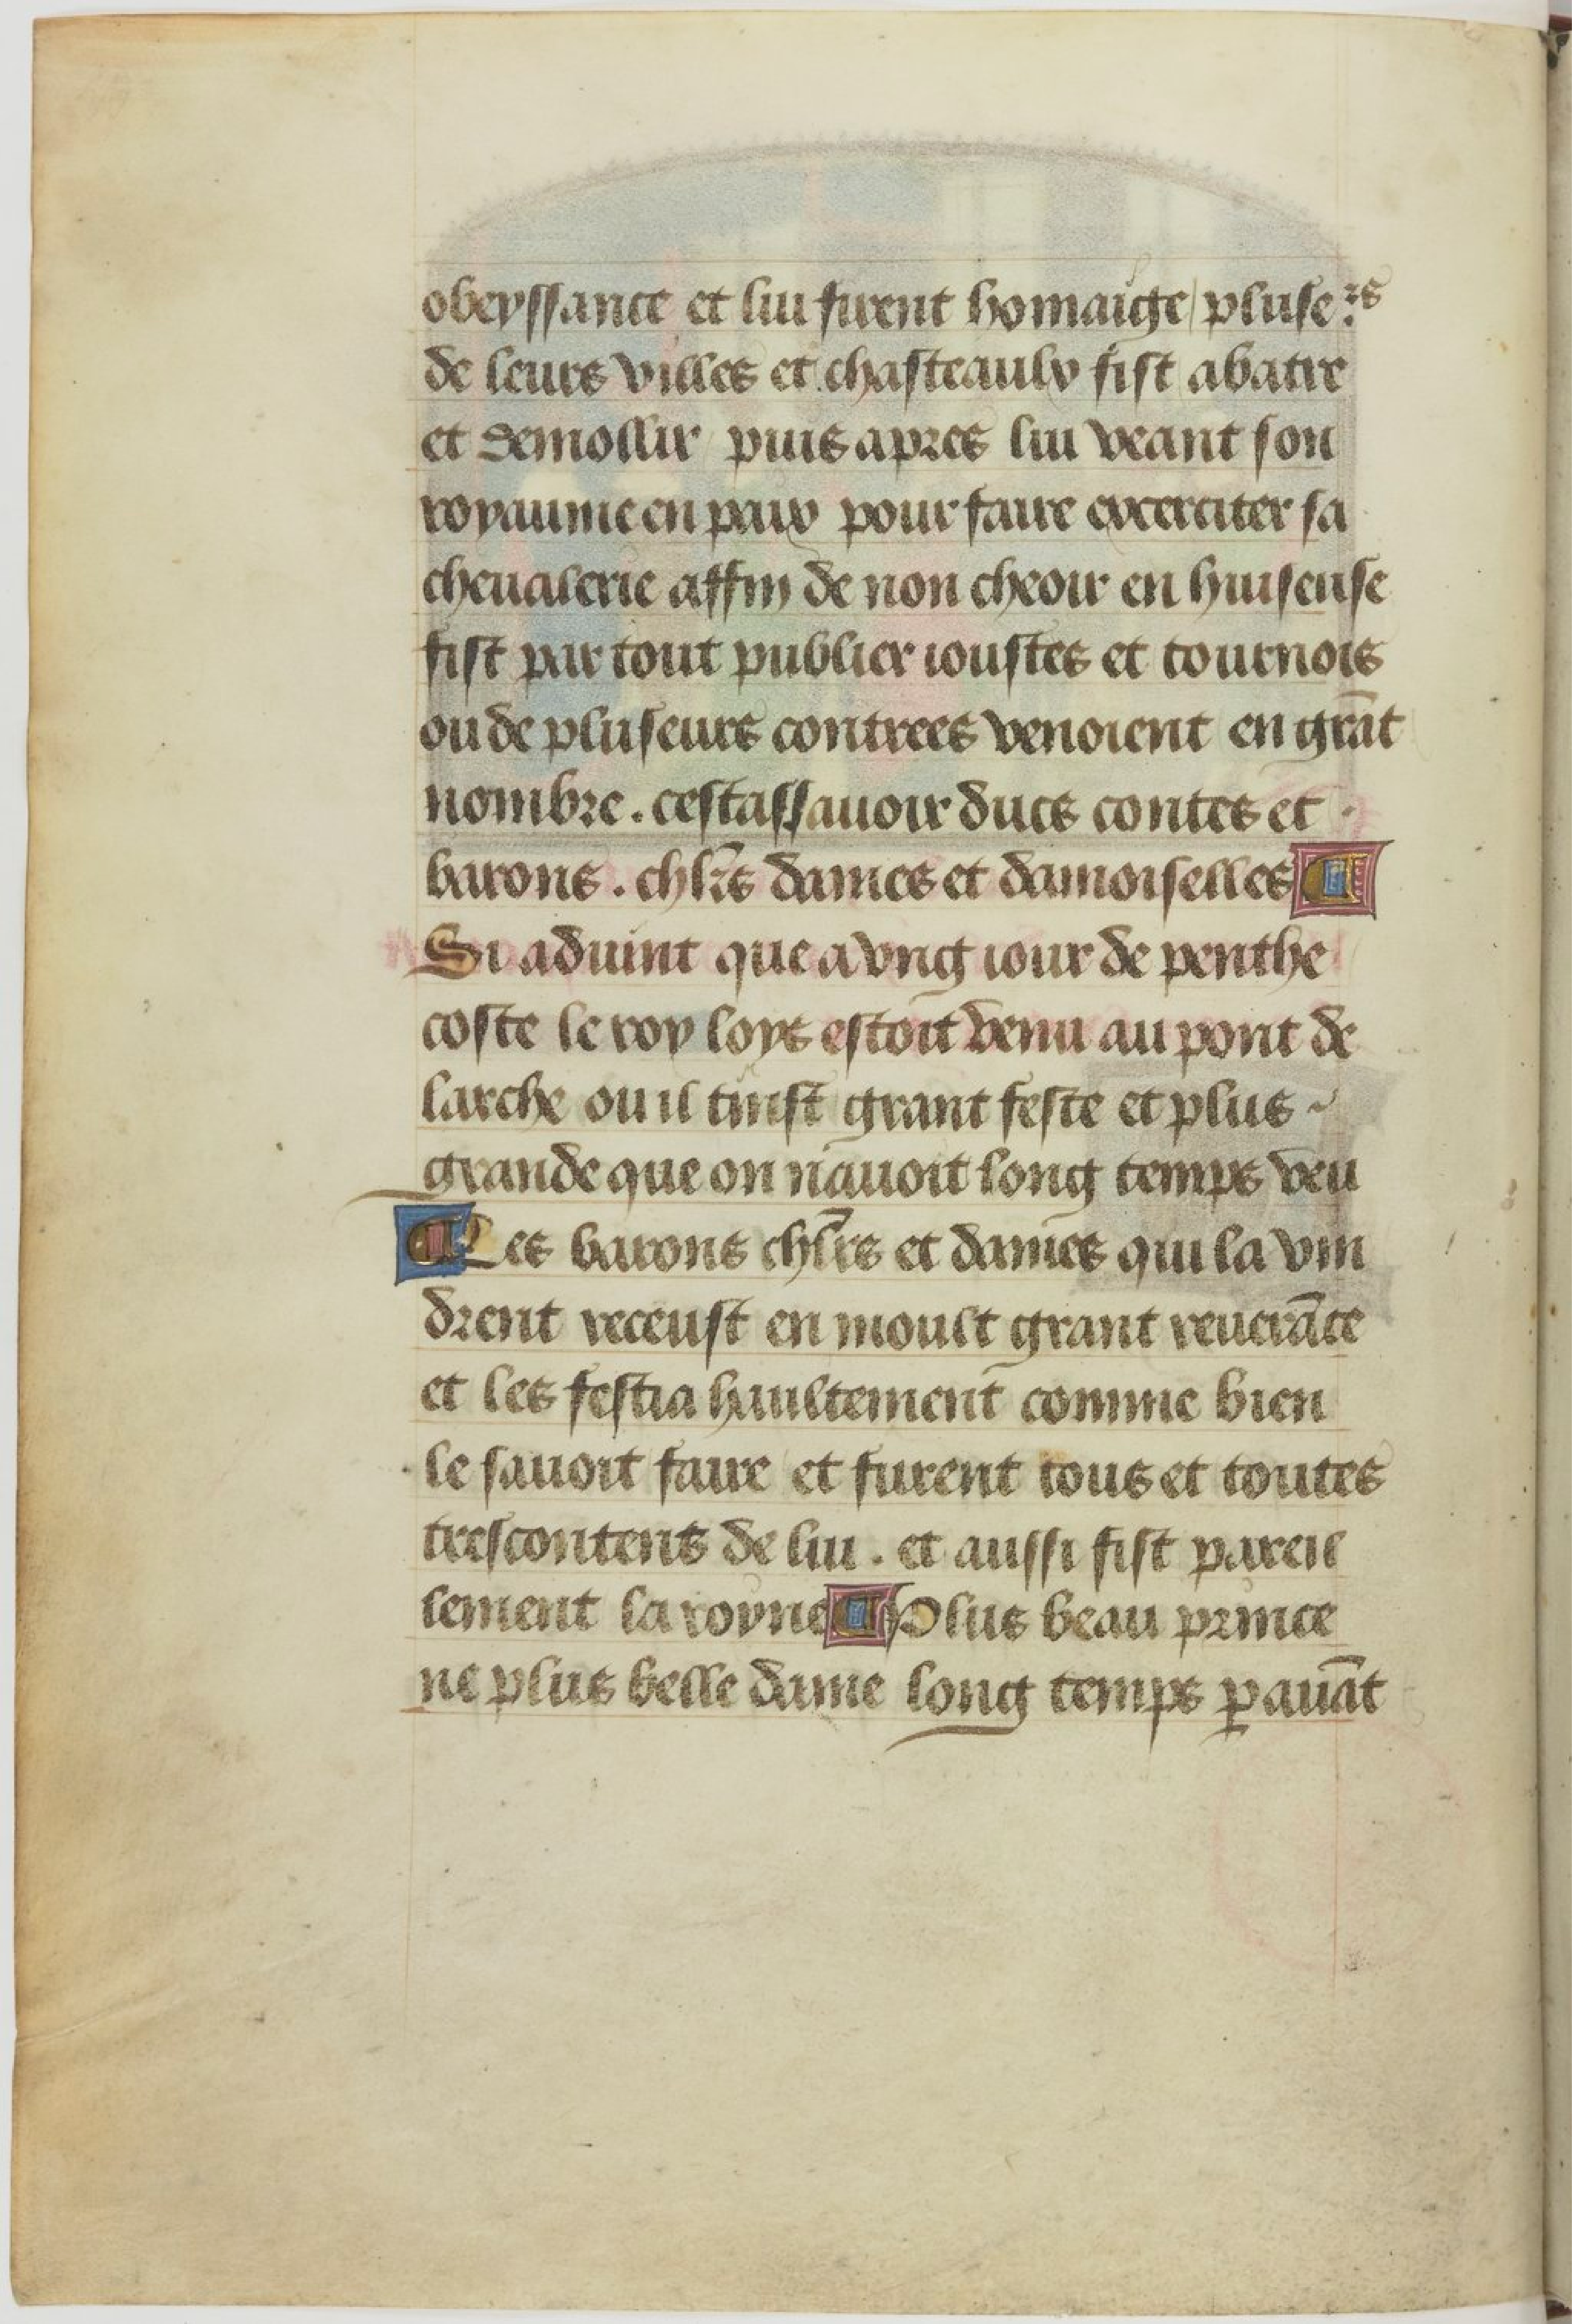 obeyssance et lui firent homaige / pluseˢ
de leurs villes et chasteaulx fist abatre
et demollir puis apres lui veant son
royaume en paix pour faire excerciter sa
cheualerie affin de non cheoir en huiseuse
fist par tout publier ioustes et tournois
ou de pluseurs contrees venoient en grāt
nombre . cestassauoir ducs contes et
barons . chl̄rs dames et damoiselles ¶
Si aduint que a vng iour de penthe
coste le roy loys estoit venu au pont de
larche ou il tinst grant feste et plus ~
grande que on nauoit long temps veu
¶ Les barons chl̄rs et dames qui la vin
drent receust en moult grant reuerāce
et les festia haultement comme bien
le sauoit faire et furent tous et toutes
trescontens de lui . et aussi fist pareil
lement la royne ¶ Plus beau prince
ne plus belle dame long temps ꝑ auāt